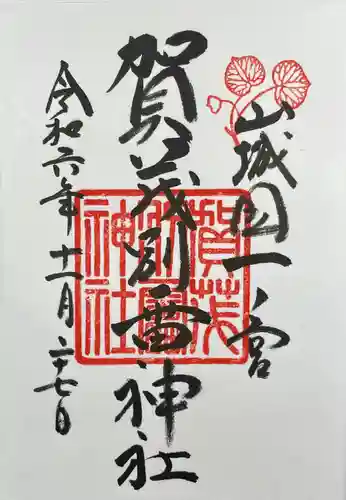 山城国一ノ宮
賀茂別雷神社
令和六年十一月二十七日
賀茂別雷神社